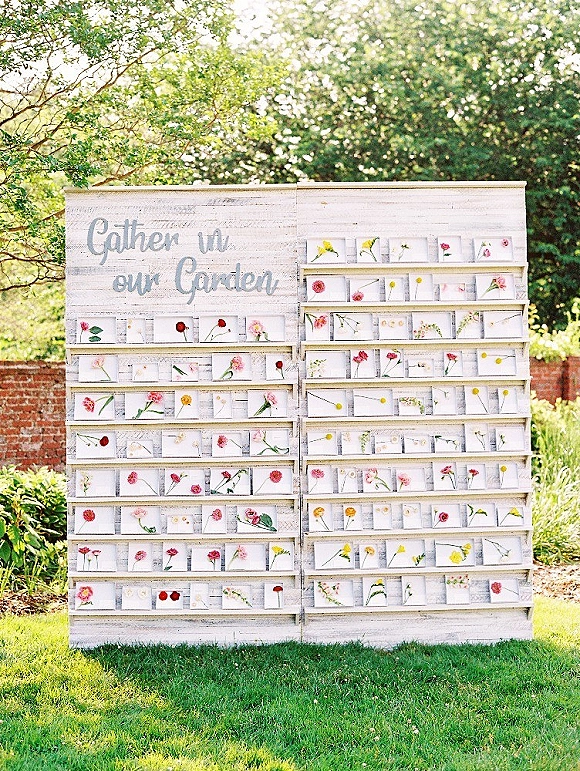 Gather in
our Garden